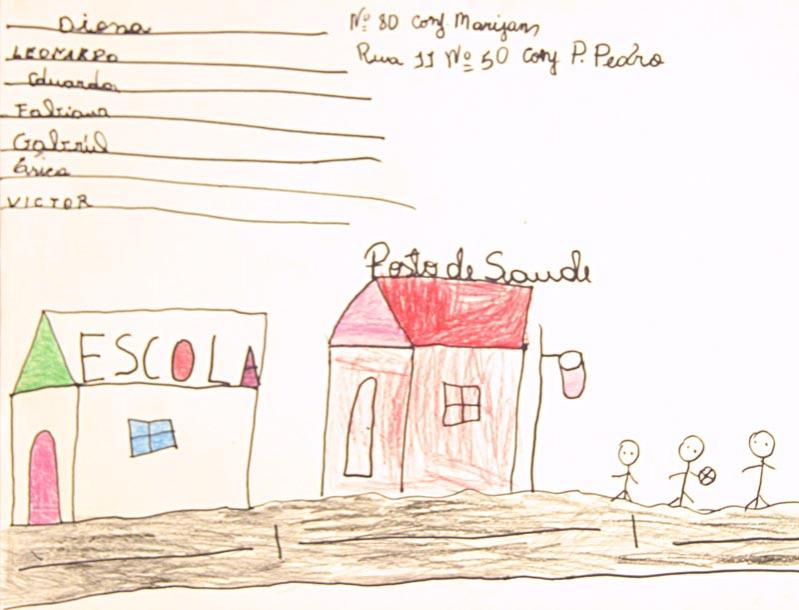 Diana
LEONARDO
Eduarda
Fabiana
Gabriel
Érica
VICTOR
Nº 80 Conj Marijan
Rua 11 Nº 50 Conj P. Pedro
Posto de Saude
ESCOLA